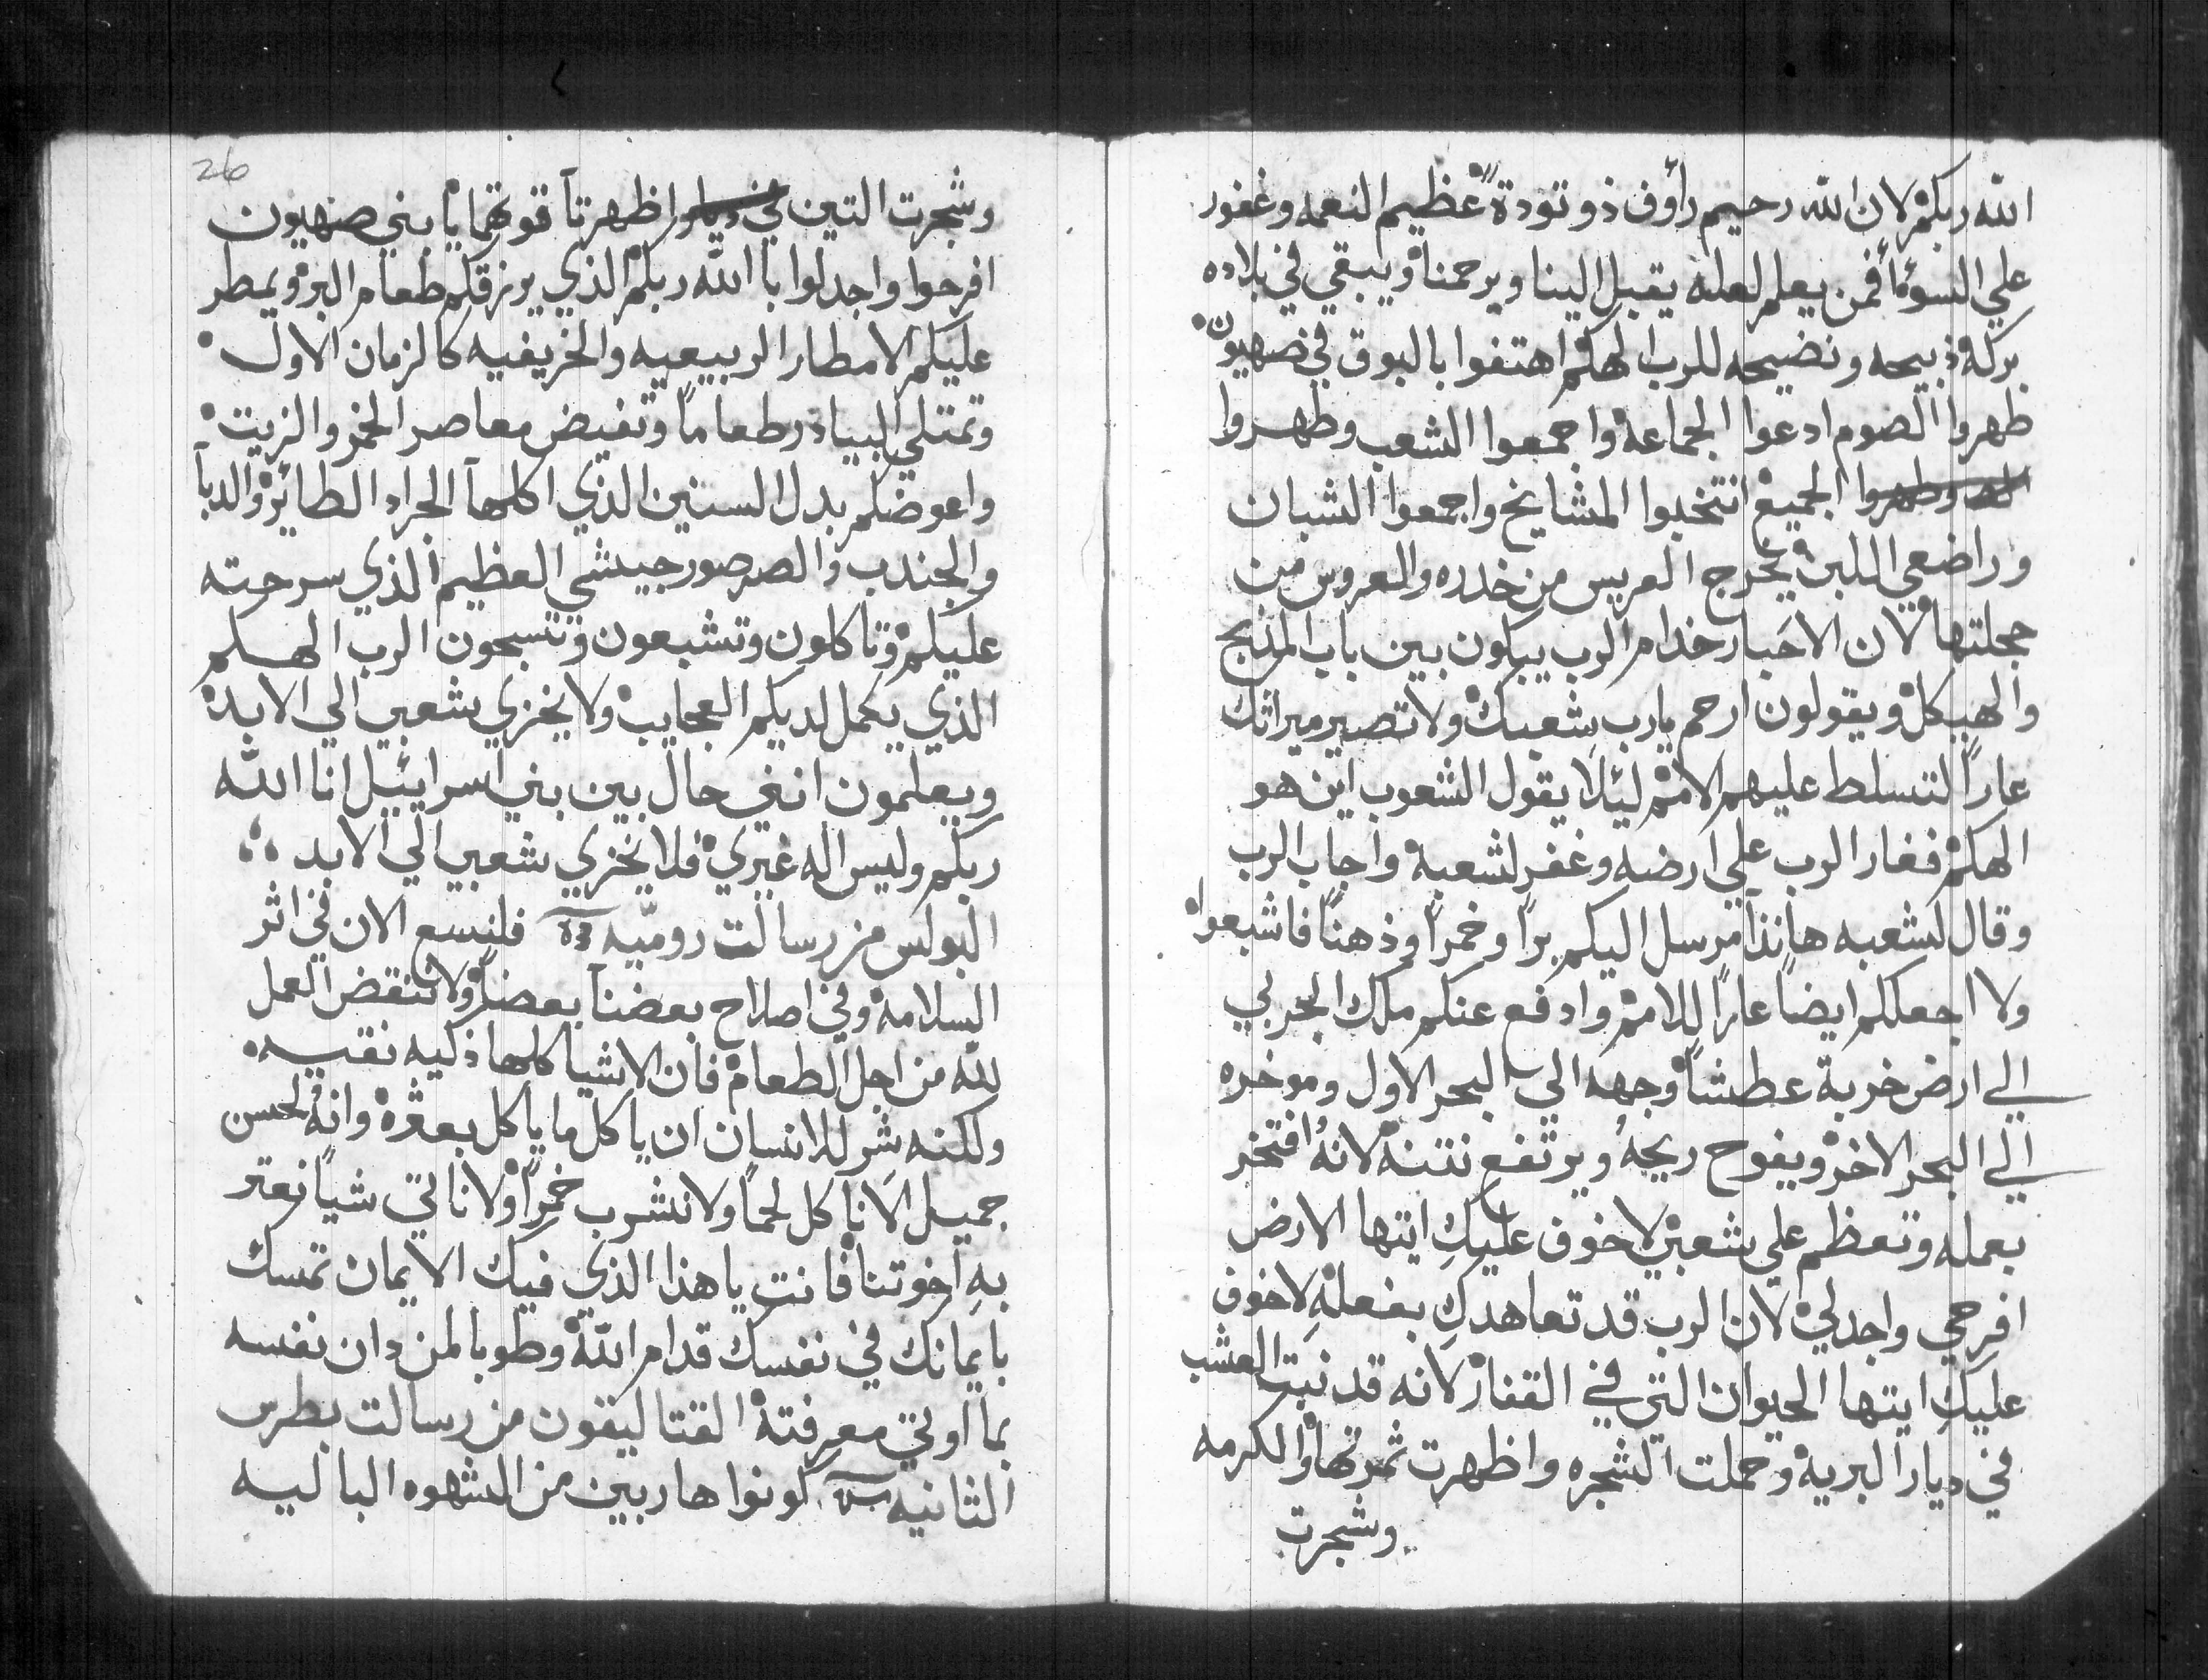 الله ربكم لان الله رحيم رأوف ذو تودة عظيم النعمه وغفور
علي السوء فمن يعلم لعله يقبل الينا ويرحمنا ويبقي في بلاده
بركه ذبيحه ونضيحه للرب الهكم اهتفوا بالبوق في صهيون
طهروا الصوم ادعوا الجماعة واجمعوا الشعب وطهروا
الجميع انتخبوا المشايخ واجمعوا الشبان
وراضعي اللبن يخرج العريس من خدره والعروس من
حجلتها لان الاحبار خدام الرب يبكون بين باب المذبح
والهيكل ويقولون ارحم يارب شعبك ولا تصير ميراثك
عاراً لتسلط عليهم الامم ليئلا يقول الشعوب اين هو
الهكم فغار الرب علي ارضه وغفر لشعبه واجاب الرب
وقال لشعبه هانذا مرسل اليكم براً وخمراً وذهناً فاشبعوا
ولا اجعلكم ايضاً عاراً للامم وادفع عنكم ملك الجربي
الي ارض خربة عطشاً وجهه الي البحر الاول وموخره
الي البحر الاخر ويفوح ريحهُ ويرتفع نتنه لانهُ افتخر
بعمله وتعظم علي شعبي لا خوف عليكِ ايتها الارض
افرحي واجدلي لان الرب قد تعاهدكِ بفعلهِ لا خوف
عليكِ ايتها الحيوان التي في القفار لانه قد نبت العشب
في ديار البريه وحملت الشجره واظهرت ثمرتها والكرمه
وشجرت
26
وشجرت التين اظهرتا قوتهما يا بني صهيون
افرحوا واجدلوا باالله ربكم الذي يرزقكم طعام البر ويمطر
عليكم الامطار الربيعيه والخريفيه كالزمان الاول
وتمتلي البيادر طعاماً وتفيض معاصر الخمر والزيت
واعوضكم بدل السنين الذي اكلها الجراد الطائر والدبا
والجندب والصرصور جيشي العظيم الذي سرحته
عليكم وتاكلون وتشبعون وتسبحون الرب الهكم
الذي يكمل لديكم العجايب ولا يخزي شعبي الي الابد
ويعلمون انني حال بين بني اسراييل انا الله
ربكم وليس اله غيري فلا يخزي شعبي الي الابد
البولس من رسالت روميّه فلنسع الان في اثر
السلامه وفي اصلاح بعضنا بعضاً ولا ننقض العمل
لله من اجل الطعام فان الاشيا كلها ذكيه نقيه
ولكنه شر للانسان ان ياكل ما ياكل بعثره وانهُ لحسن
جميل الا ناكل لحماً ولا نشرب خمراً ولا ناتي شياً نعتر
بهِ اخوتنا فانت يا هذا الذي فيك الايمان تمسك
بايمانك في نفسك قدام الله وطوبا لمن دان نفسه
بما اوتي معرفته القتاليقون من رسالت بطرس
الثانيه كونوا هاربين من الشهوه الباليه